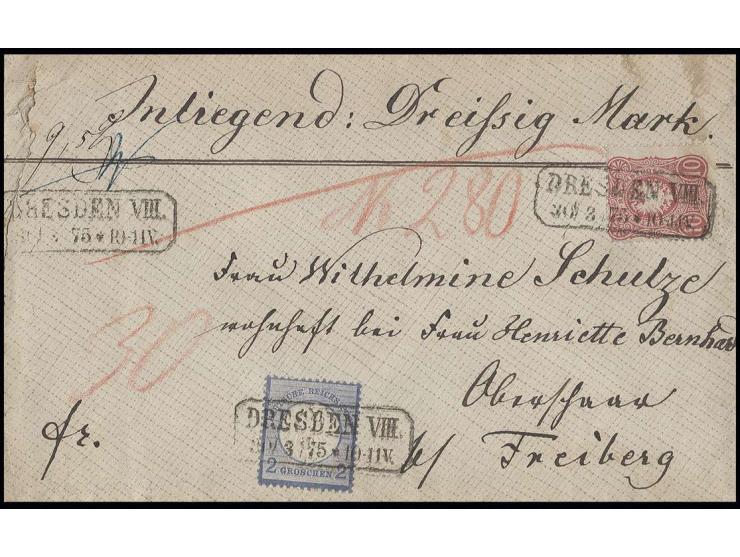 Inliegend: Dreissig Mark.
9,50
No 280
10 10
DRESDEN VIII.
30/ 3 /75 * 10-11V.
DRESDEN VIII.
30/ 3 75 * 10-11V.
Frau Wilhelmine Schulze
wohnhaft bei Frau Henriette Bernhard
30
Oberschaar
REICHS
DRESDEN VIII.
30/ 3 /75 * 10-11V.
2 GROSCHEN 2
fr.
b/ Freiberg